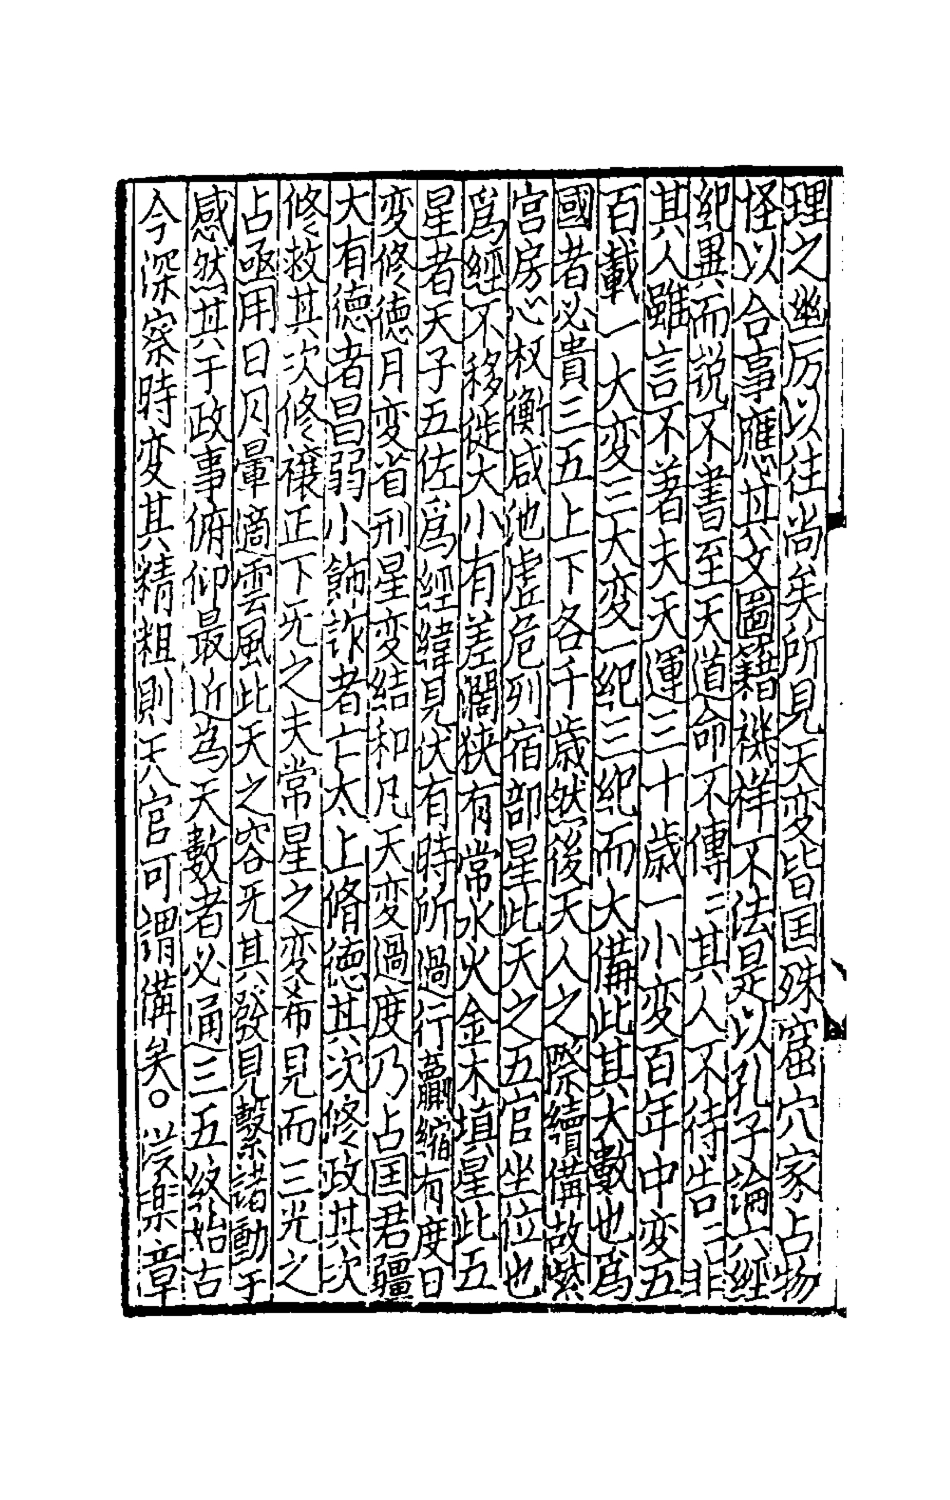 理之幽厉以往尚矣所見天変皆囯殊窟穴家占物
怪以合事應其文圖籍禨祥不法是以孔子論六經
紀異而説不書至天道命不傳〻其人不待告〻非
其人雖言不著夫天運三十歳一小変百年中変五
百載一大変三大変一紀三紀而大備此其大數也爲
國者必貴三五上下各千歳然後天人之際續備故紫
宫房心权衡咸池虚危列宿部星此天之五官坐位也
爲經不移徙大小有差濶狭有常水火金木填星此五
星者天子五佐爲經緯見伏有時所過行贏縮有度日
変修德月変省刑星変結和凡天変過度乃占囯君彊
大有德者昌弱小飾詐者亡太上脩德其次修政其次
修救其次修禳正下旡之夫常星之変希見而三光之
占亟用日月暈適雲風此天之容旡其發見繫諸動于
感然其于政事俯仰最近為天數者必通三五終始古
今深察時変其精粗則天官可謂備矣。 学楽章